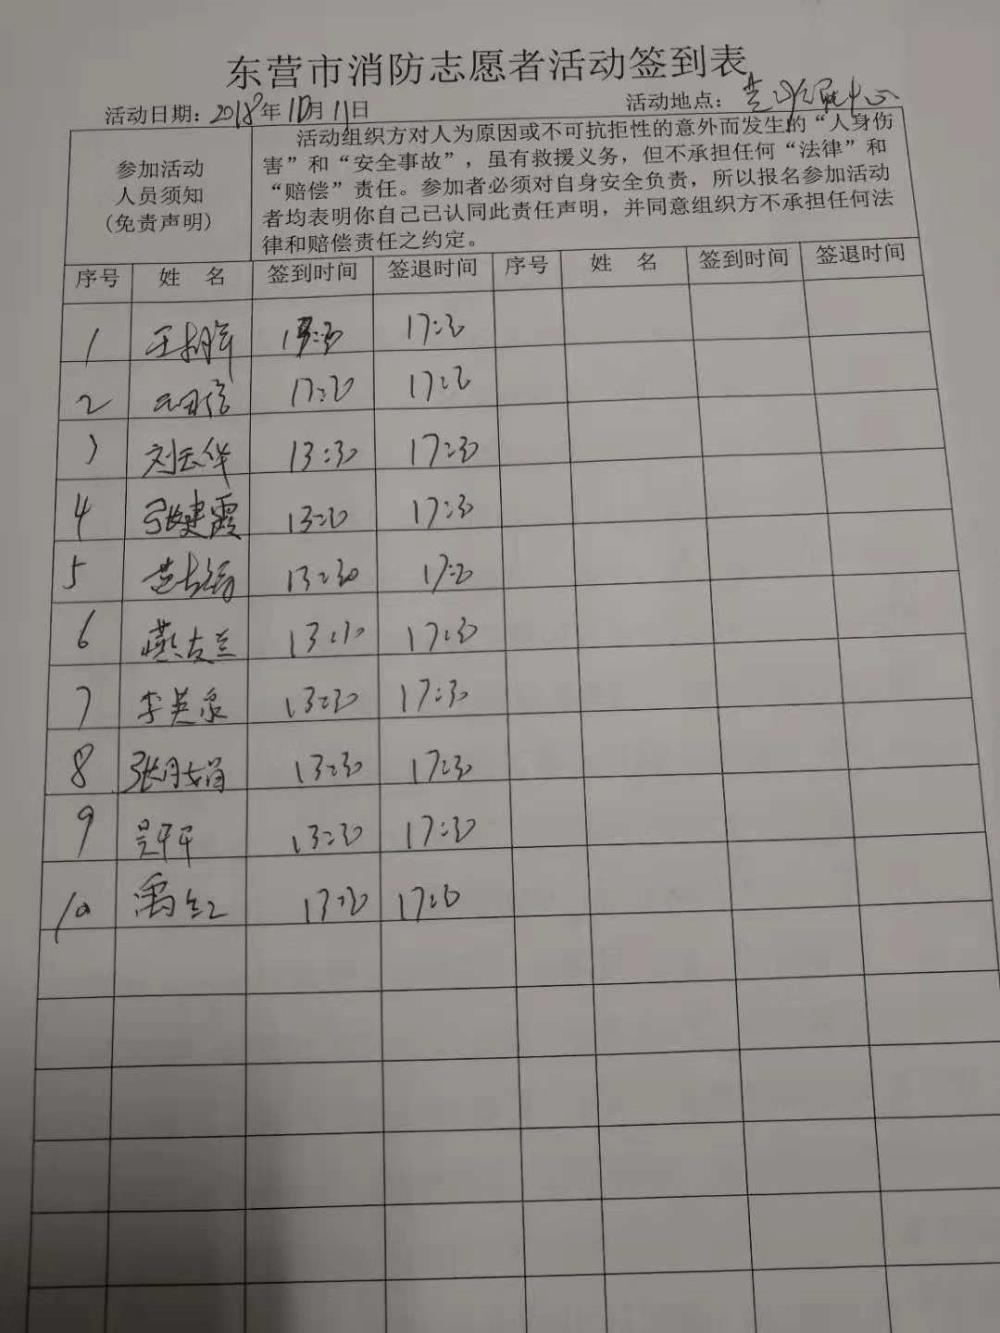 东营市消防志愿者活动签到表
活动日期：2018年10月11日 活动地点：
参加活动
人员须知
(免责声明)
活动组织方对人为原因或不可抗拒性的意外而发生的“人身伤
害”和“安全事故”，虽有救援义务，但不承担任何“法律”和
“赔偿”责任。参加者必须对自身安全负责，所以报名参加活动
者均表明你自己已认同此责任声明，并同意组织方不承担任何法
律和赔偿责任之约定。
序号 姓 名 签到时间 签退时间 序号 姓 名 签到时间 签退时间
1 17:30
2 17:30
3 刘云华 13:30 17:30
4 张建霞 13:30 17:30
5 13:30 17:30
6 燕友兰 13:30 17:30
7 李英泉 13:30 17:30
8 张月娟 13:30 17:30
9 吴平平 13:30 17:30
10 禹红 13:30 17:30